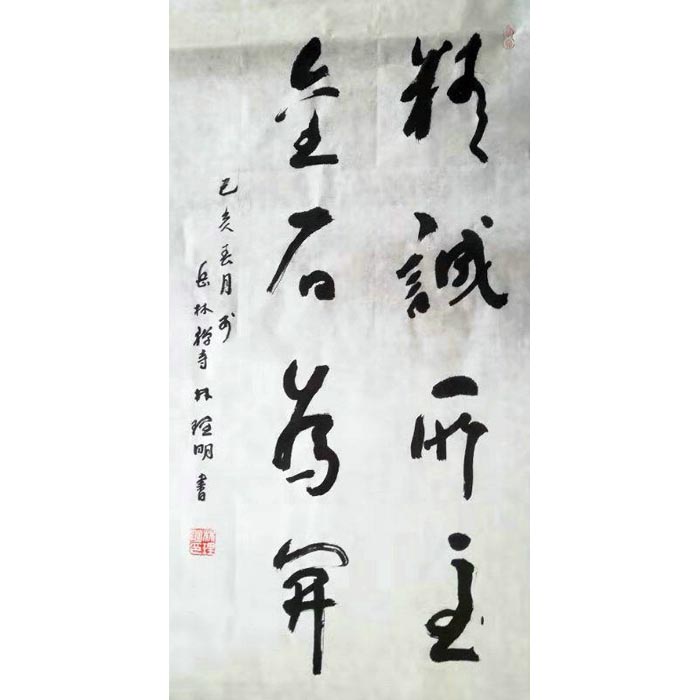 精誠所至
金石為開
己亥春月於
岳林禅寺林理明書